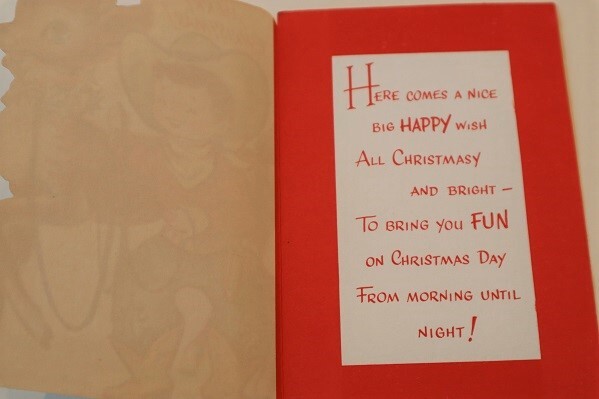 Here comes a nice
big HAPPY wish
All Christmasy
and bright –
To bring you FUN
on Christmas Day
From morning until
night!